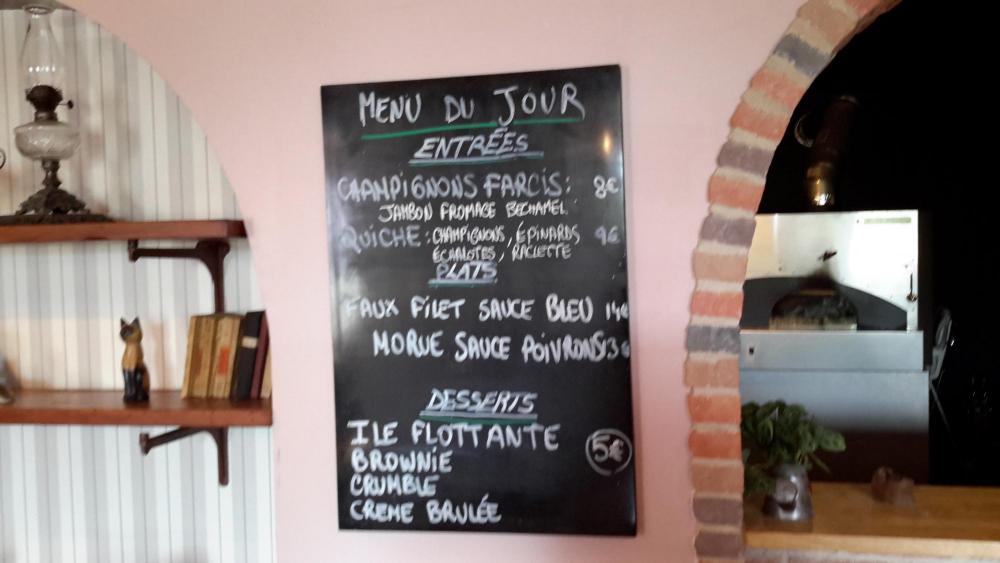 MENU DU JOUR
ENTRÉES
CHAMPIGNONS FARCIS : 8€
JAMBON FROMAGE BECHAMEL
QUICHE : CHAMPIGNONS, ÉPINARDS 9€
ÉCHALOTES, RACLETTE
PLATS
FAUX FILET SAUCE BLEU 14€
MORUE SAUCE POIVRONS 13€
DESSERTS
ILE FLOTTANTE
5€
BROWNIE
CRUMBLE
CREME BRULÉE